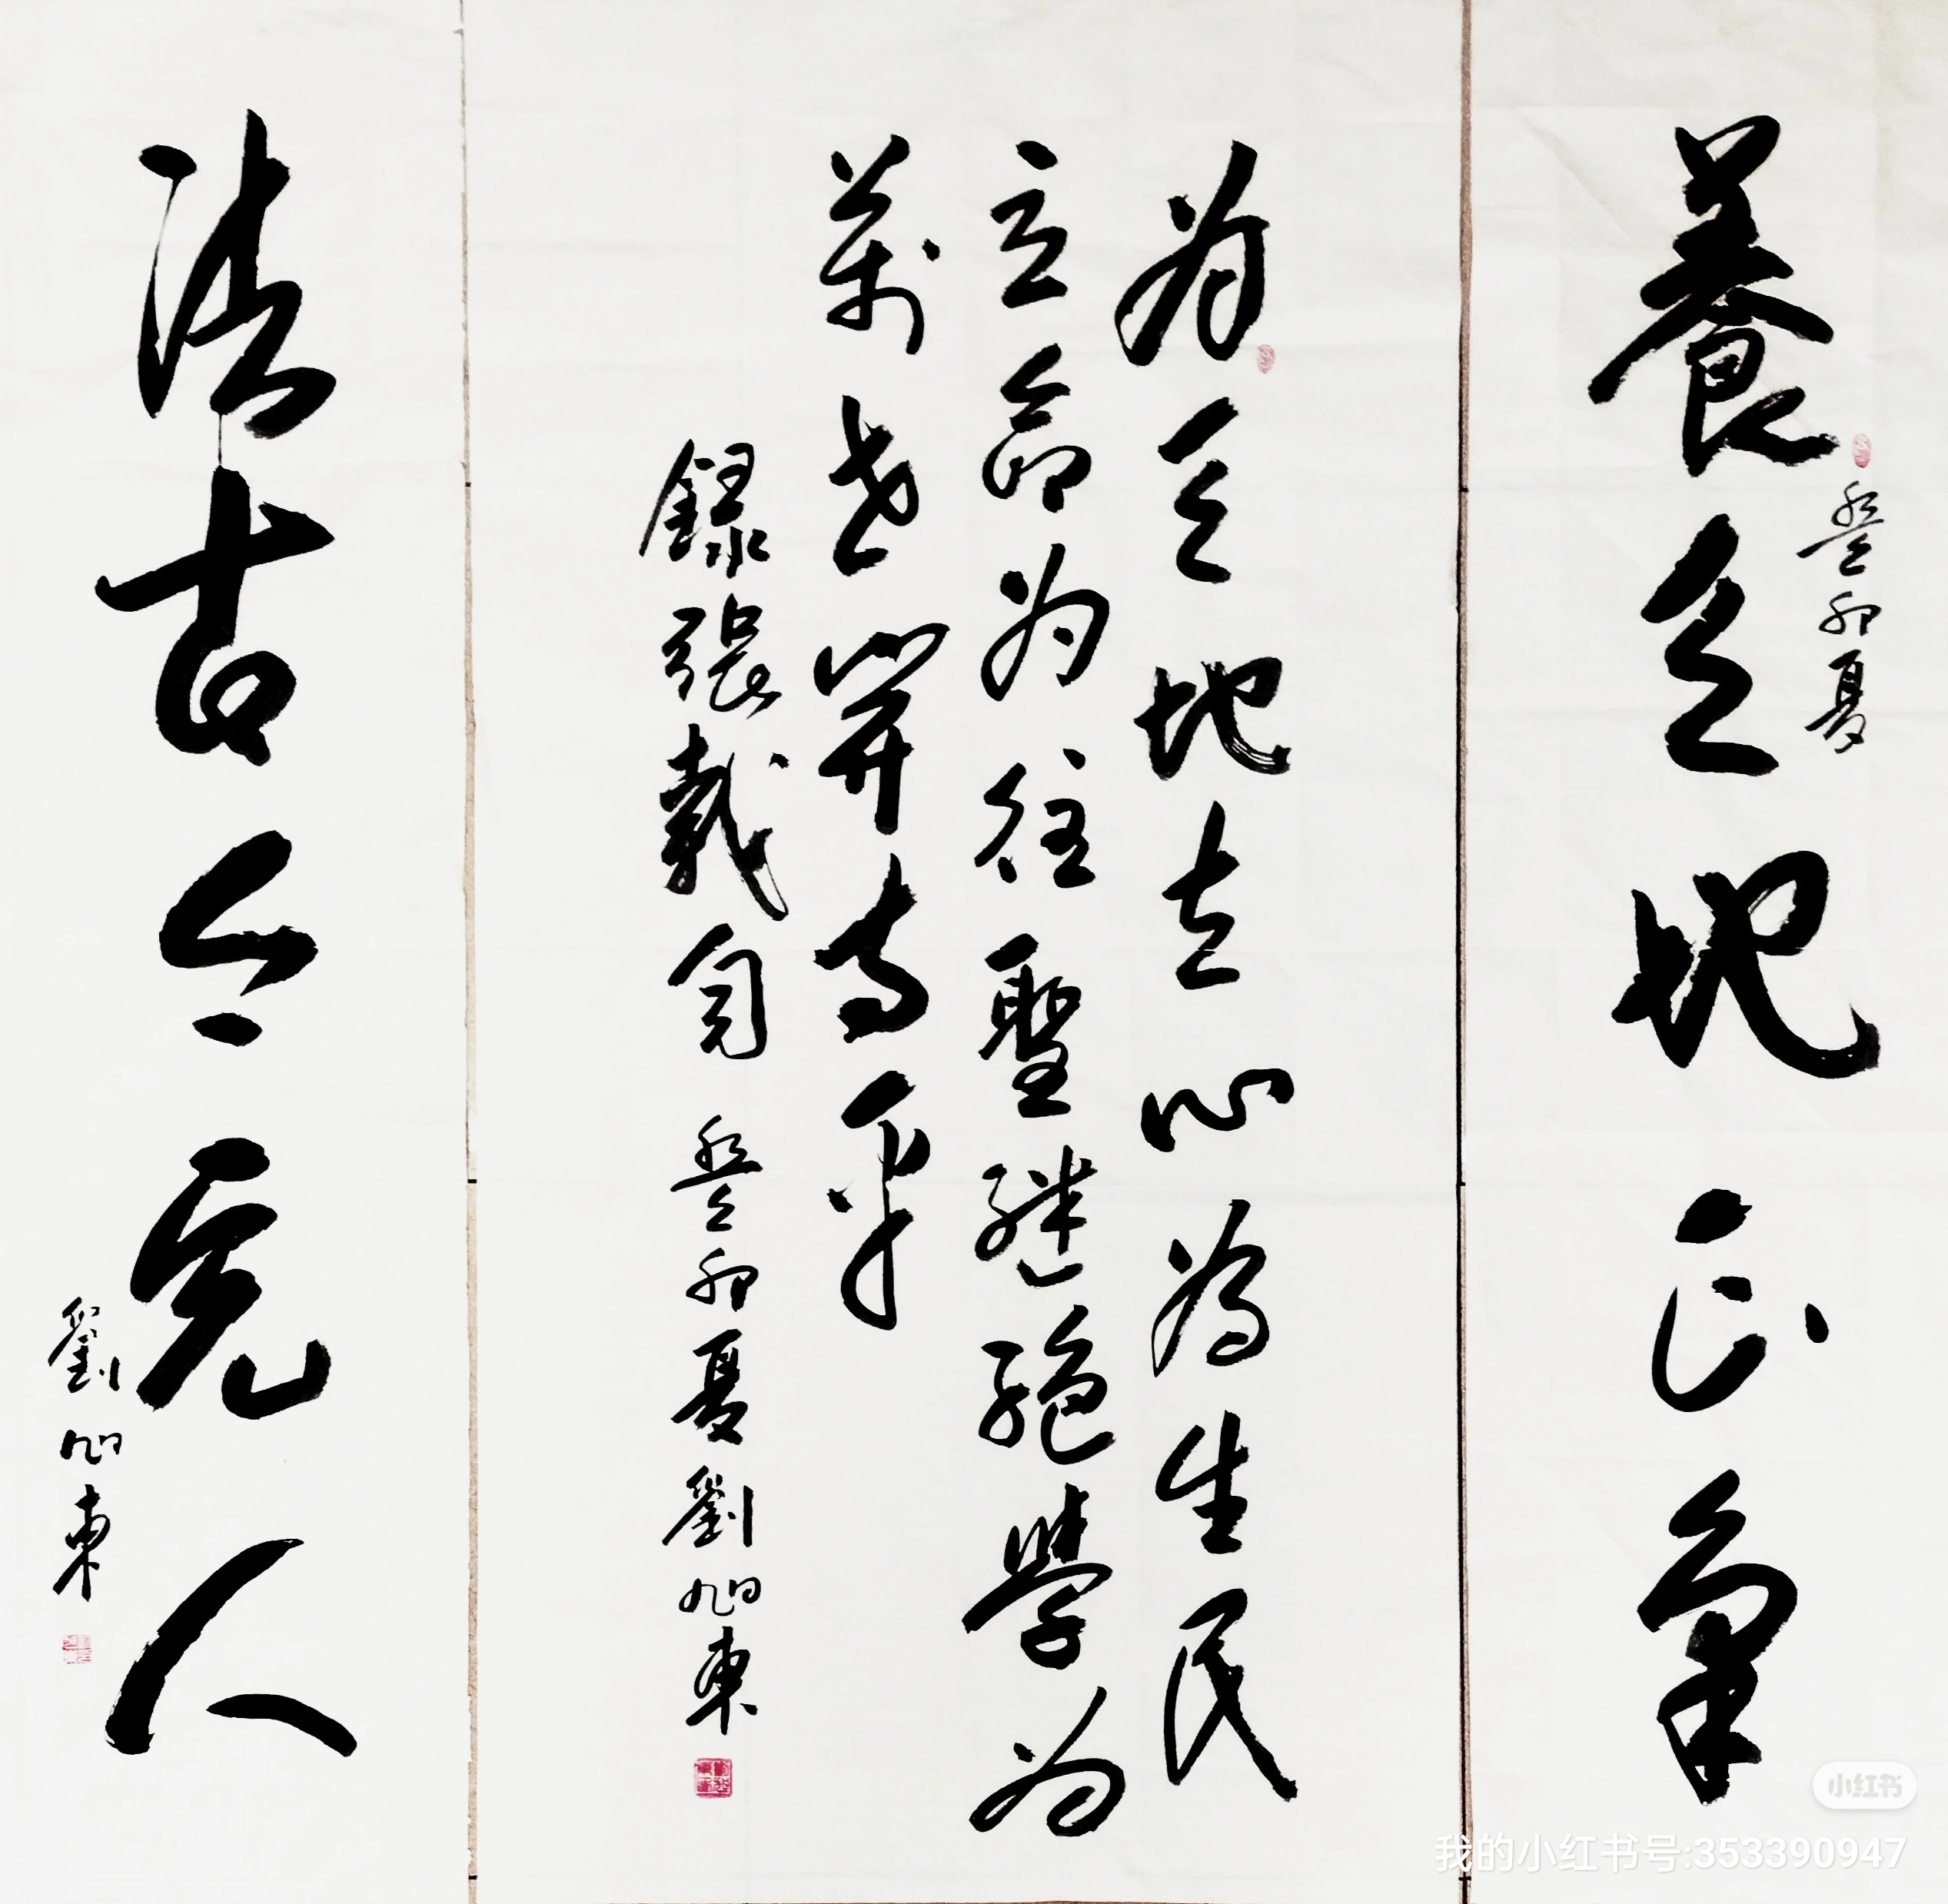 養天地正氣
癸卯夏
為天地立心為生民
立命为往聖继絕學为
萬世開太平
錄張載句 癸卯夏劉旭東
法古今完人
劉旭東
小红书
我的小红书号:353390947